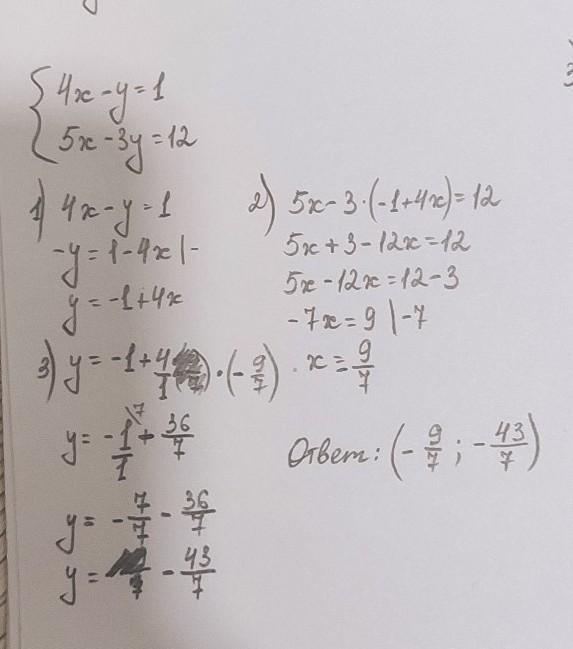 4x-y=1
5x-3y=12
1) 4x-y=1
-y=1-4x|-
y=-1+4x
2) 5x-3·(-1+4x)=12
5x+3-12x=12
5x-12x=12-3
-7x=9|-7
x=9/7
3) y=-1+4/1·(-9/7)
y=-1/1\7+36/7
y=-7/7-36/7
y=-43/7
Ответ: (-9/7; -43/7)